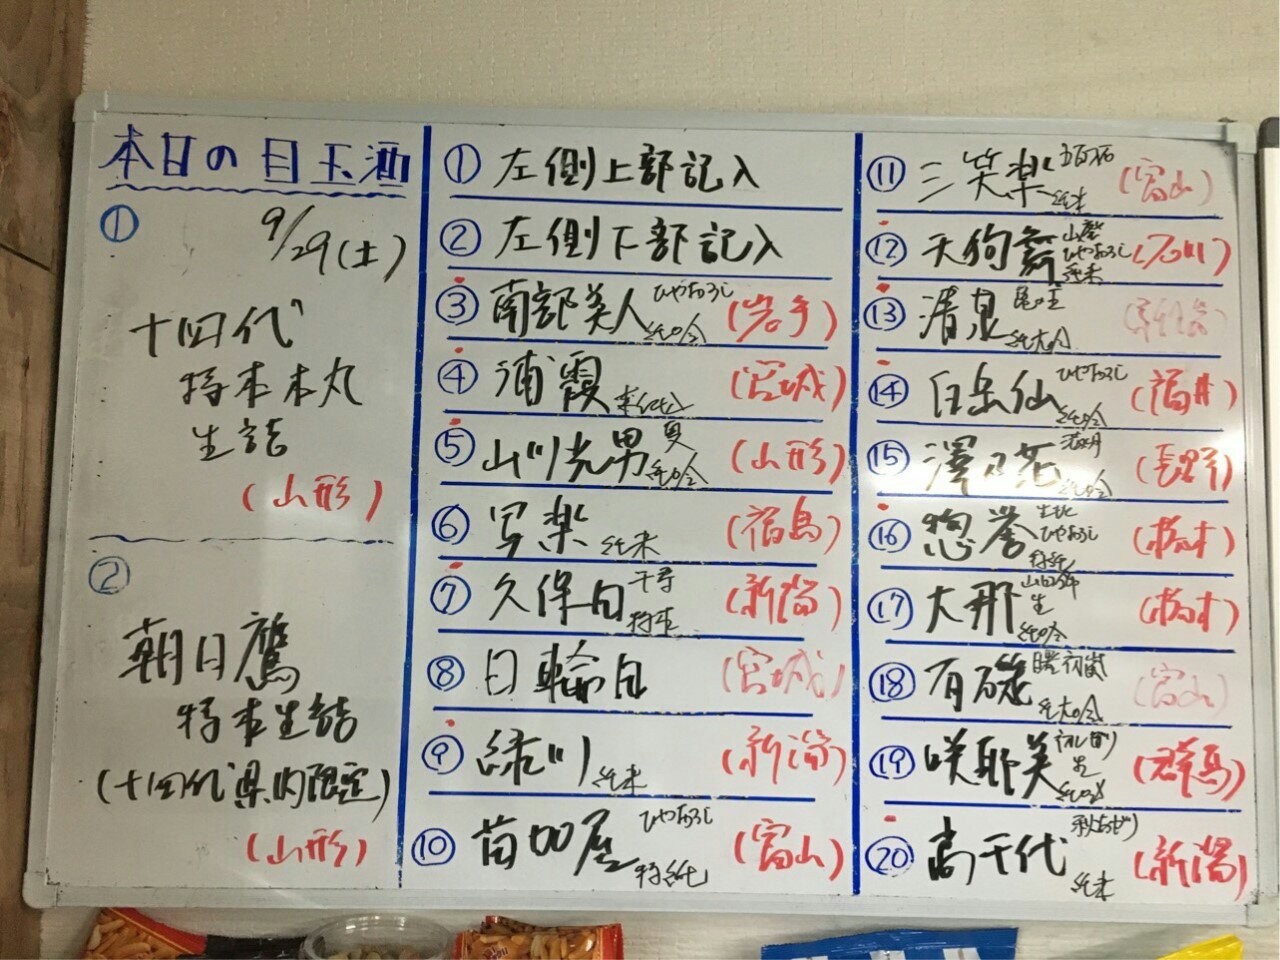 本日の目玉酒
① 9/29(土)
十四代
特本本丸
生詰
(山形)
②
朝日鷹
特本生詰
(十四代県内限定)
(山形)
① 左側上部記入
② 左側下部記入
③ 南部美人 ひやおろし 純吟 (岩手)
④ 浦霞 (宮城)
⑤ 山川光男 夏 純吟 (山形)
⑥ 写楽 純米 (福島)
⑦ 久保田 千寿 (新潟)
⑧ 日輪田 (宮城)
⑨ 緑川 純米 (新潟)
⑩ 苗加屋 ひやおろし 特純 (富山)
⑪ 三笑楽 純米 (富山)
⑫ 天狗舞 山廃 ひやおろし 純米 (石川)
⑬ 清泉 亀の王 純大吟
⑭ 白岳仙 ひやおろし 純吟 (福井)
⑮ 澤乃花 純吟 (長野)
⑯ 惣誉 生酛 ひやおろし 特純 (栃木)
⑰ 大那 生 純吟 (栃木)
⑱ 有磯 曙 初嵐 純大吟 (富山)
⑲ 咲耶美 生 純吟 (群馬)
⑳ 高千代 秋あがり 純米 (新潟)